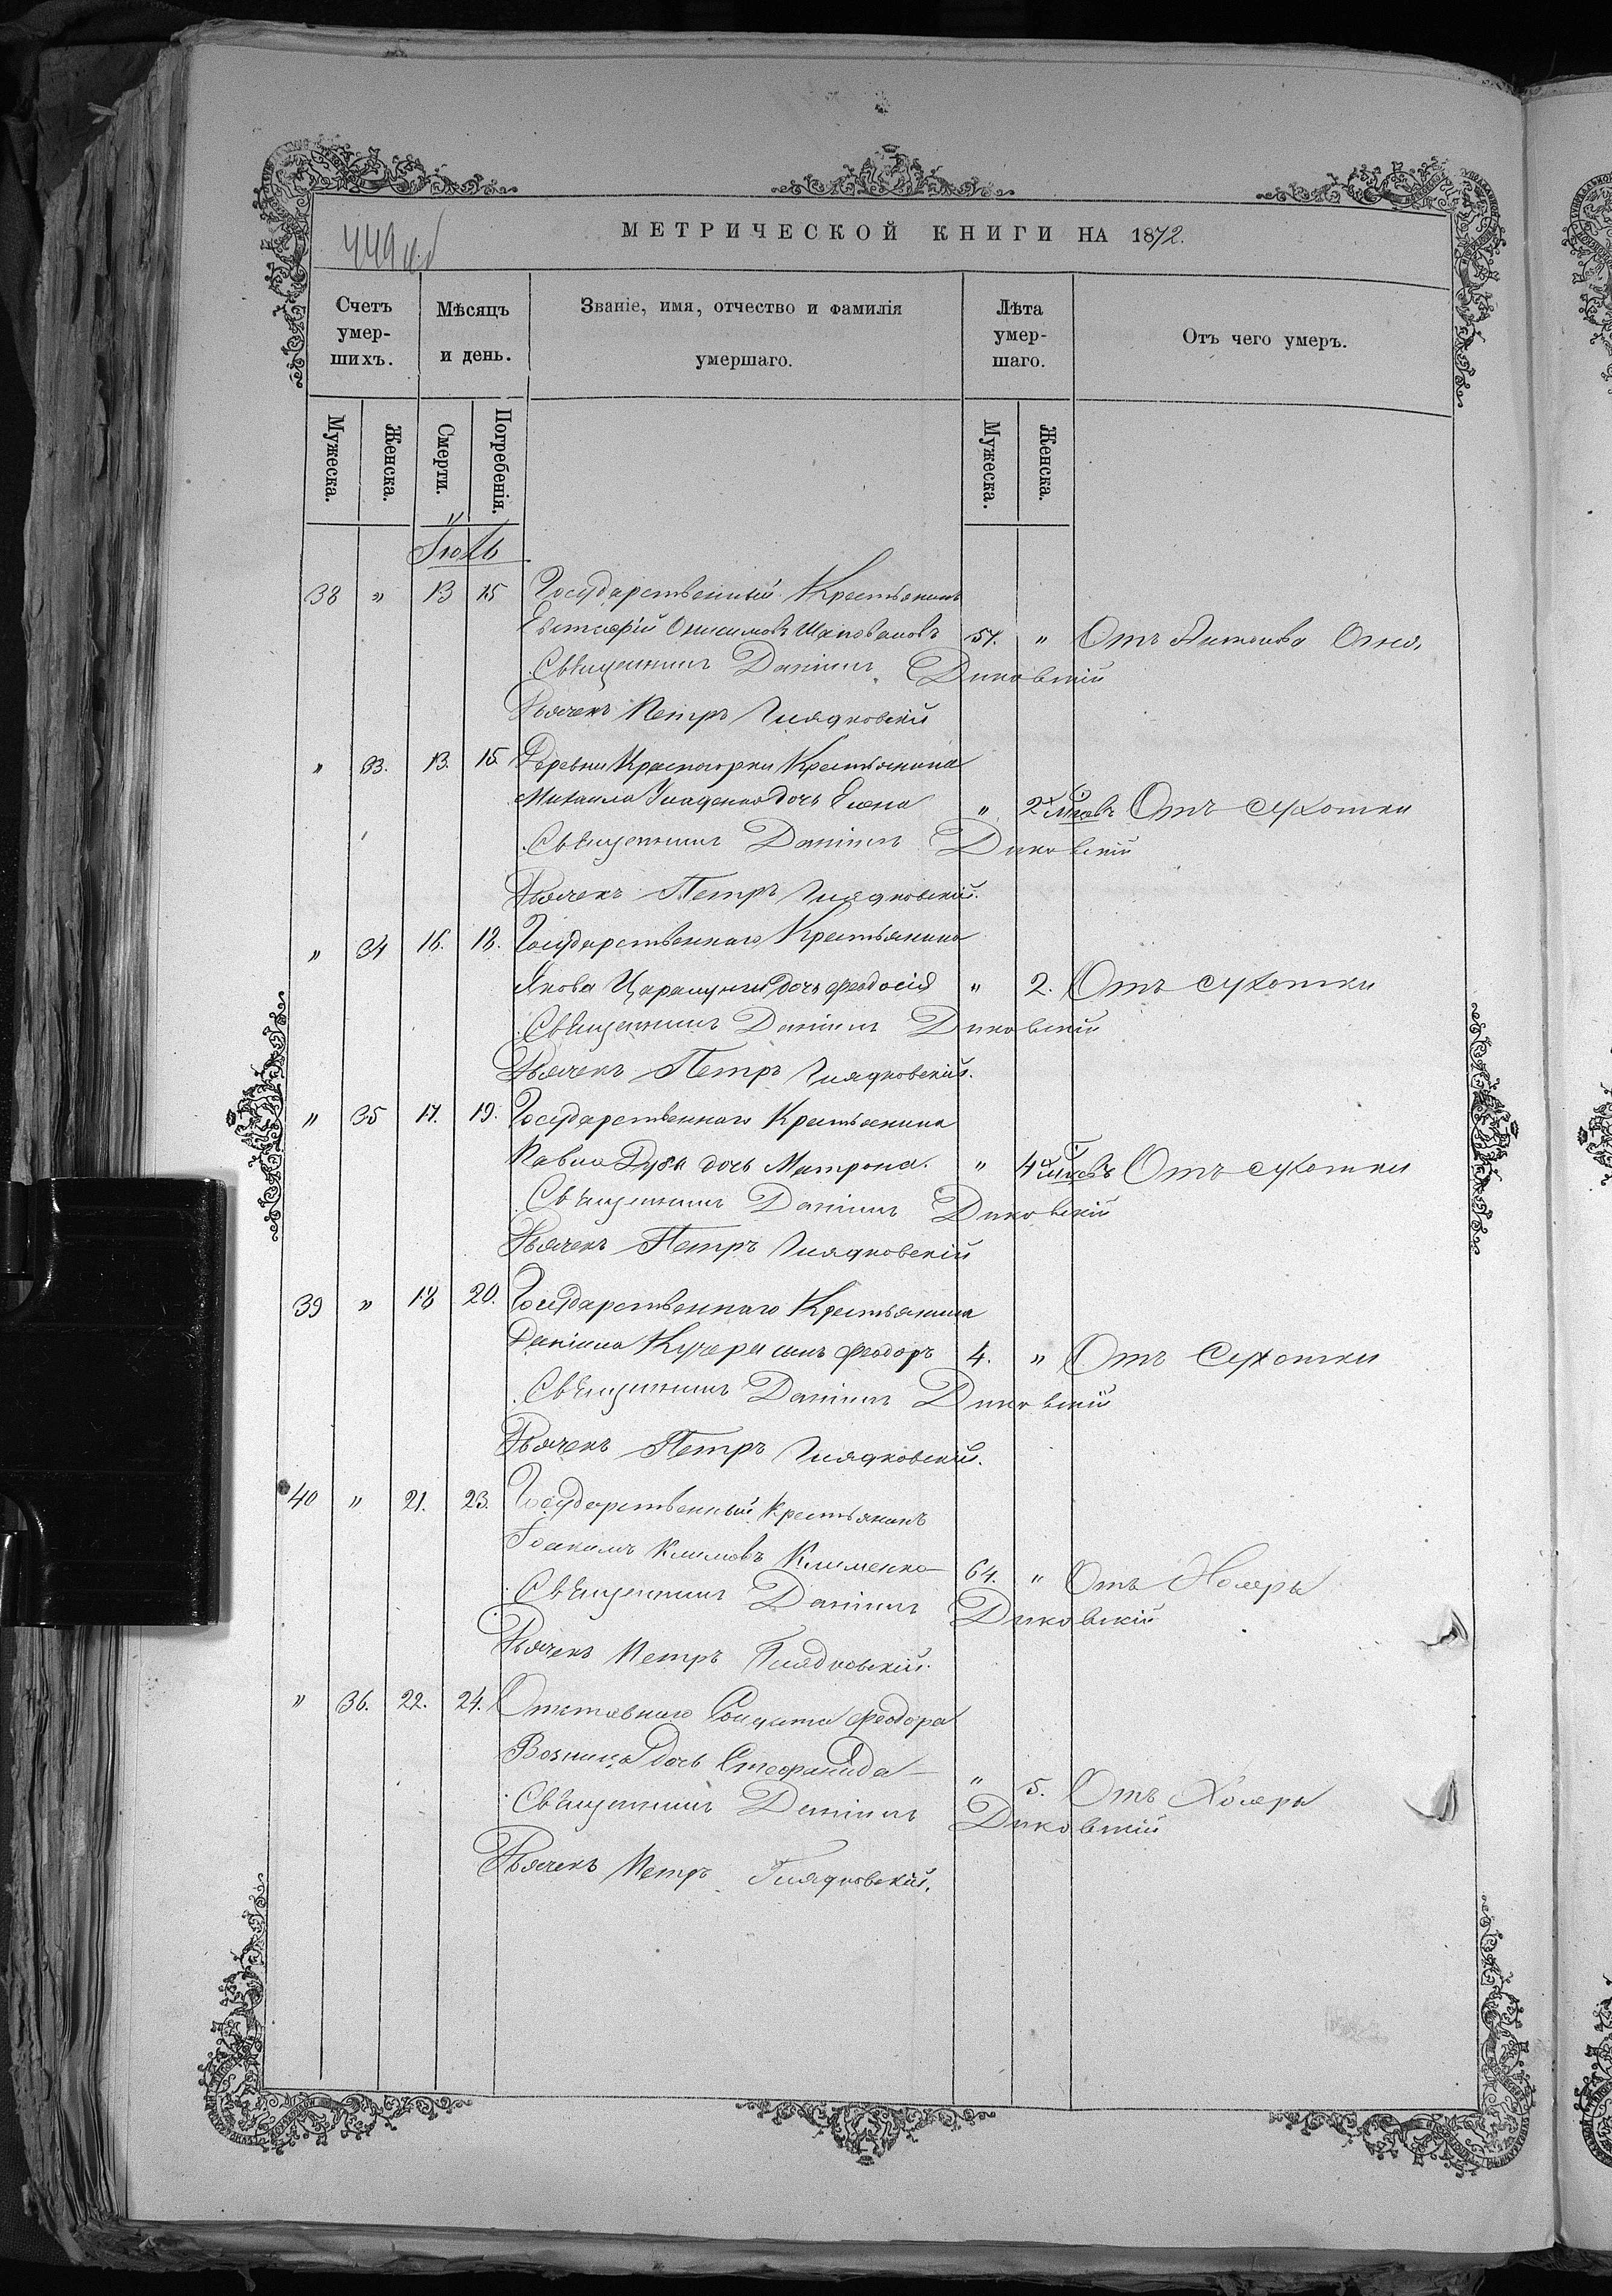 449 об
МЕТРИЧЕСКОЙ КНИГИ НА 1872.
Счетъ умер-шихъ.
Мѣсяцъ и день.
Званіе, имя, отчество и фамилія умершаго.
Лѣта умер-шаго.
Отъ чего умеръ.
Мужеска.
Женска.
Смерти.
Погребенія.
Мужеска.
Женска.
Іюль
38 " 13 15 Государственный Крестьянинъ
Евстафій Онисимовъ Шаповаловъ 57. " Отъ Антонова Огня.
Священникъ Даніилъ Диковскій
Дьячекъ Петръ Глядковскій
" 33. 13. 15. Деревни Красногорки Крестьянина
Михаила дочь Елена " 2 хъ мѣсяцовъ Отъ сухотки
Священникъ Даніилъ Диковскій
Дьячекъ Петръ Глядковскій.
" 34 16. 18. Государственнаго Крестьянина
Якова дочь Феодосія " 2. Отъ сухотки
Священникъ Даніилъ Диковскій
Дьячекъ Петръ Глядковскій.
" 35 17. 19. Государственнаго Крестьянина
Павла Дубы дочь Матрона. " 4 Отъ сухотки
Священникъ Даніилъ Диковскій
Дьячекъ Петръ Глядковскій
39 " 18 20. Государственнаго Крестьянина
Даніила Кучеры сынъ Феодоръ 4. " Отъ Сухотки
Священникъ Даніилъ Диковскій
Дьячекъ Петръ Глядковскій.
40 " 21. 23. Государственный Крестьянинъ
Іоакимъ Климовъ Клименко 64. " Отъ Холеры
Священникъ Даніилъ Диковскій
Дьячекъ Петръ Глядковскій.
" 36. 22. 24. Отставнаго Солдата Феодора
Возница дочь Стефанида " 5. Отъ Холеры
Священникъ Даніилъ Диковскій
Дьячекъ Петръ Глядковскій.